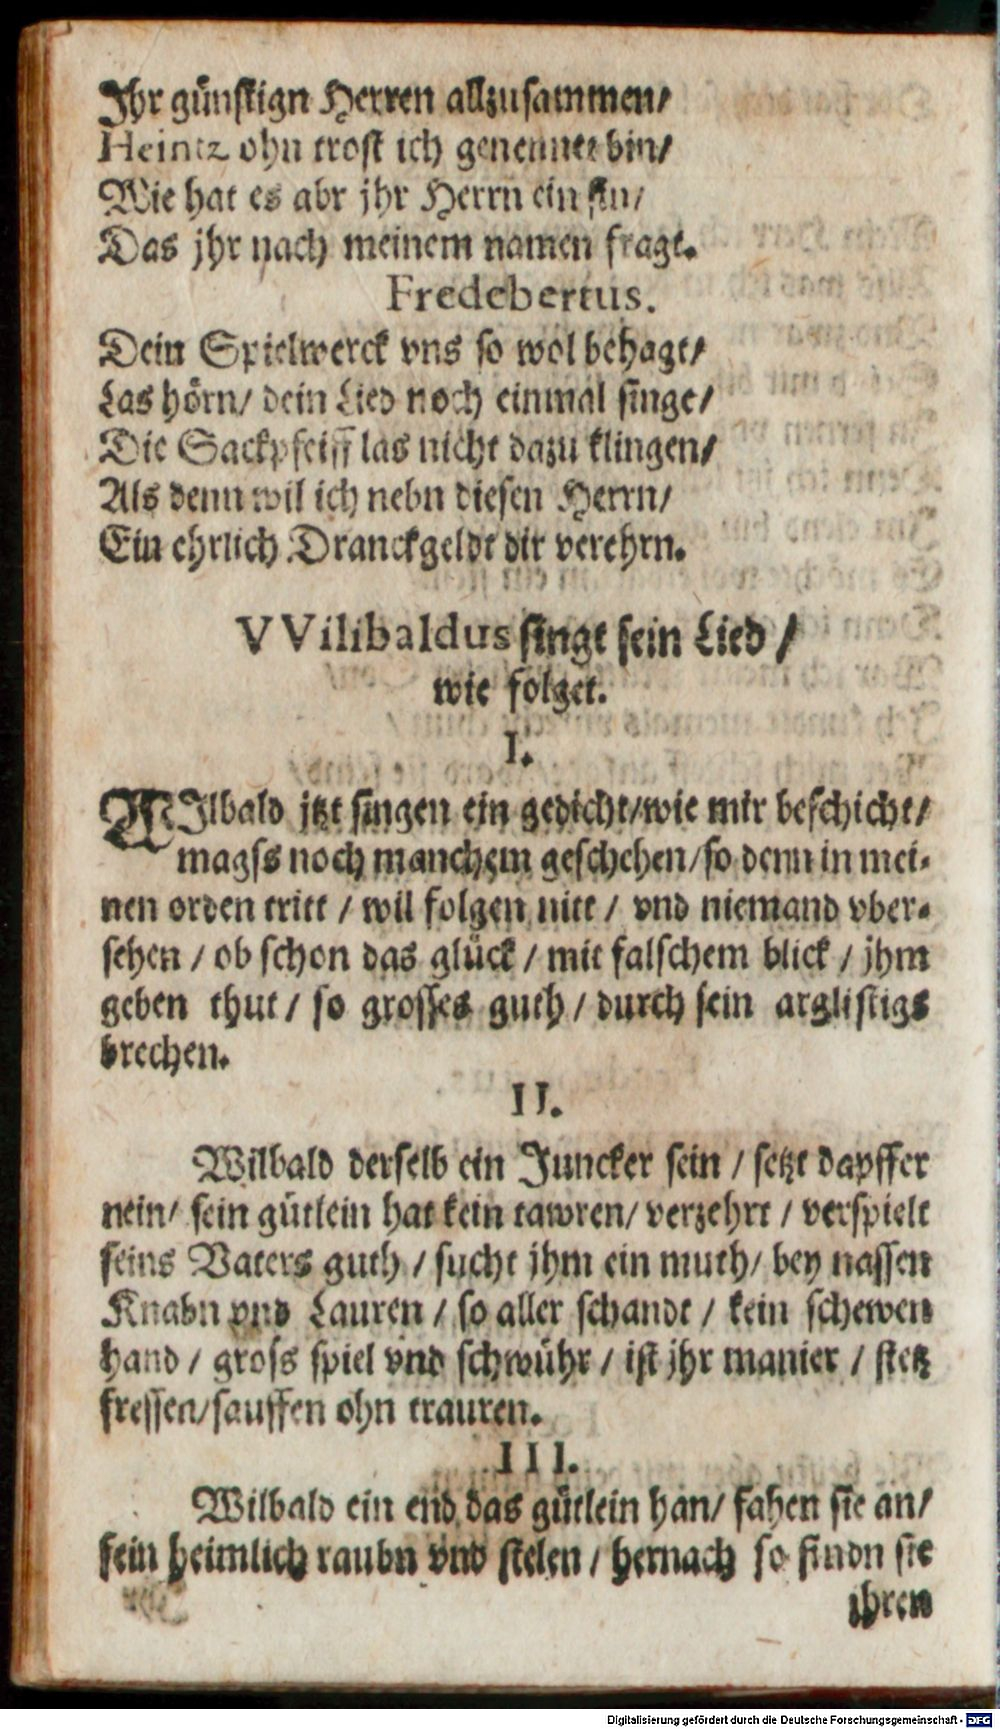 Ihr günstign Herren allzusammen/
Heintz ohn trost ich genennet bin/
Wie hat es abr jhr Herrn ein sin/
Das jhr nach meinem namen fragt.
Fredebertus.
Dein Spielwerck vns so wol behagt/
Las hörn/ dein Lied noch einmal singe/
Die Sackpfeiff las nicht dazu klingen/
Als denn wil ich nebn diesen Herrn/
Ein ehrlich Dranckgeldt dir verehrn.
VVilibaldus singt sein Lied /
wie folget.
I.
WIlbald jtzt singen ein gedicht/wie mir beschicht/
magss noch manchem geschehen/so denn in mei-
nen orden tritt / wil folgen nitt / vnd niemand vber-
sehen / ob schon das glück / mit falschem blick / jhm
geben thut / so grosses guth / durch sein arglistigs
brechen.
II.
Wilbald derselb ein Juncker sein / setzt dapffer
nein/ sein gütlein hat kein tawren/ verzehrt / verspielt
seins Vaters guth / sucht jhm ein muth/ bey nassen
Knabn vnd Lauren / so aller schandt / kein schewen
hand / gross spiel vnd schwühr / ist jhr manier / stetz
fressen/sauffen ohn trauren.
III.
Wilbald ein end das gütlein han/ fahen sie an/
fein heimlich raubn vnd stelen / hernach so findn sie
ihren
Digitalisierung gefördert durch die Deutsche Forschungsgemeinschaft - DFG